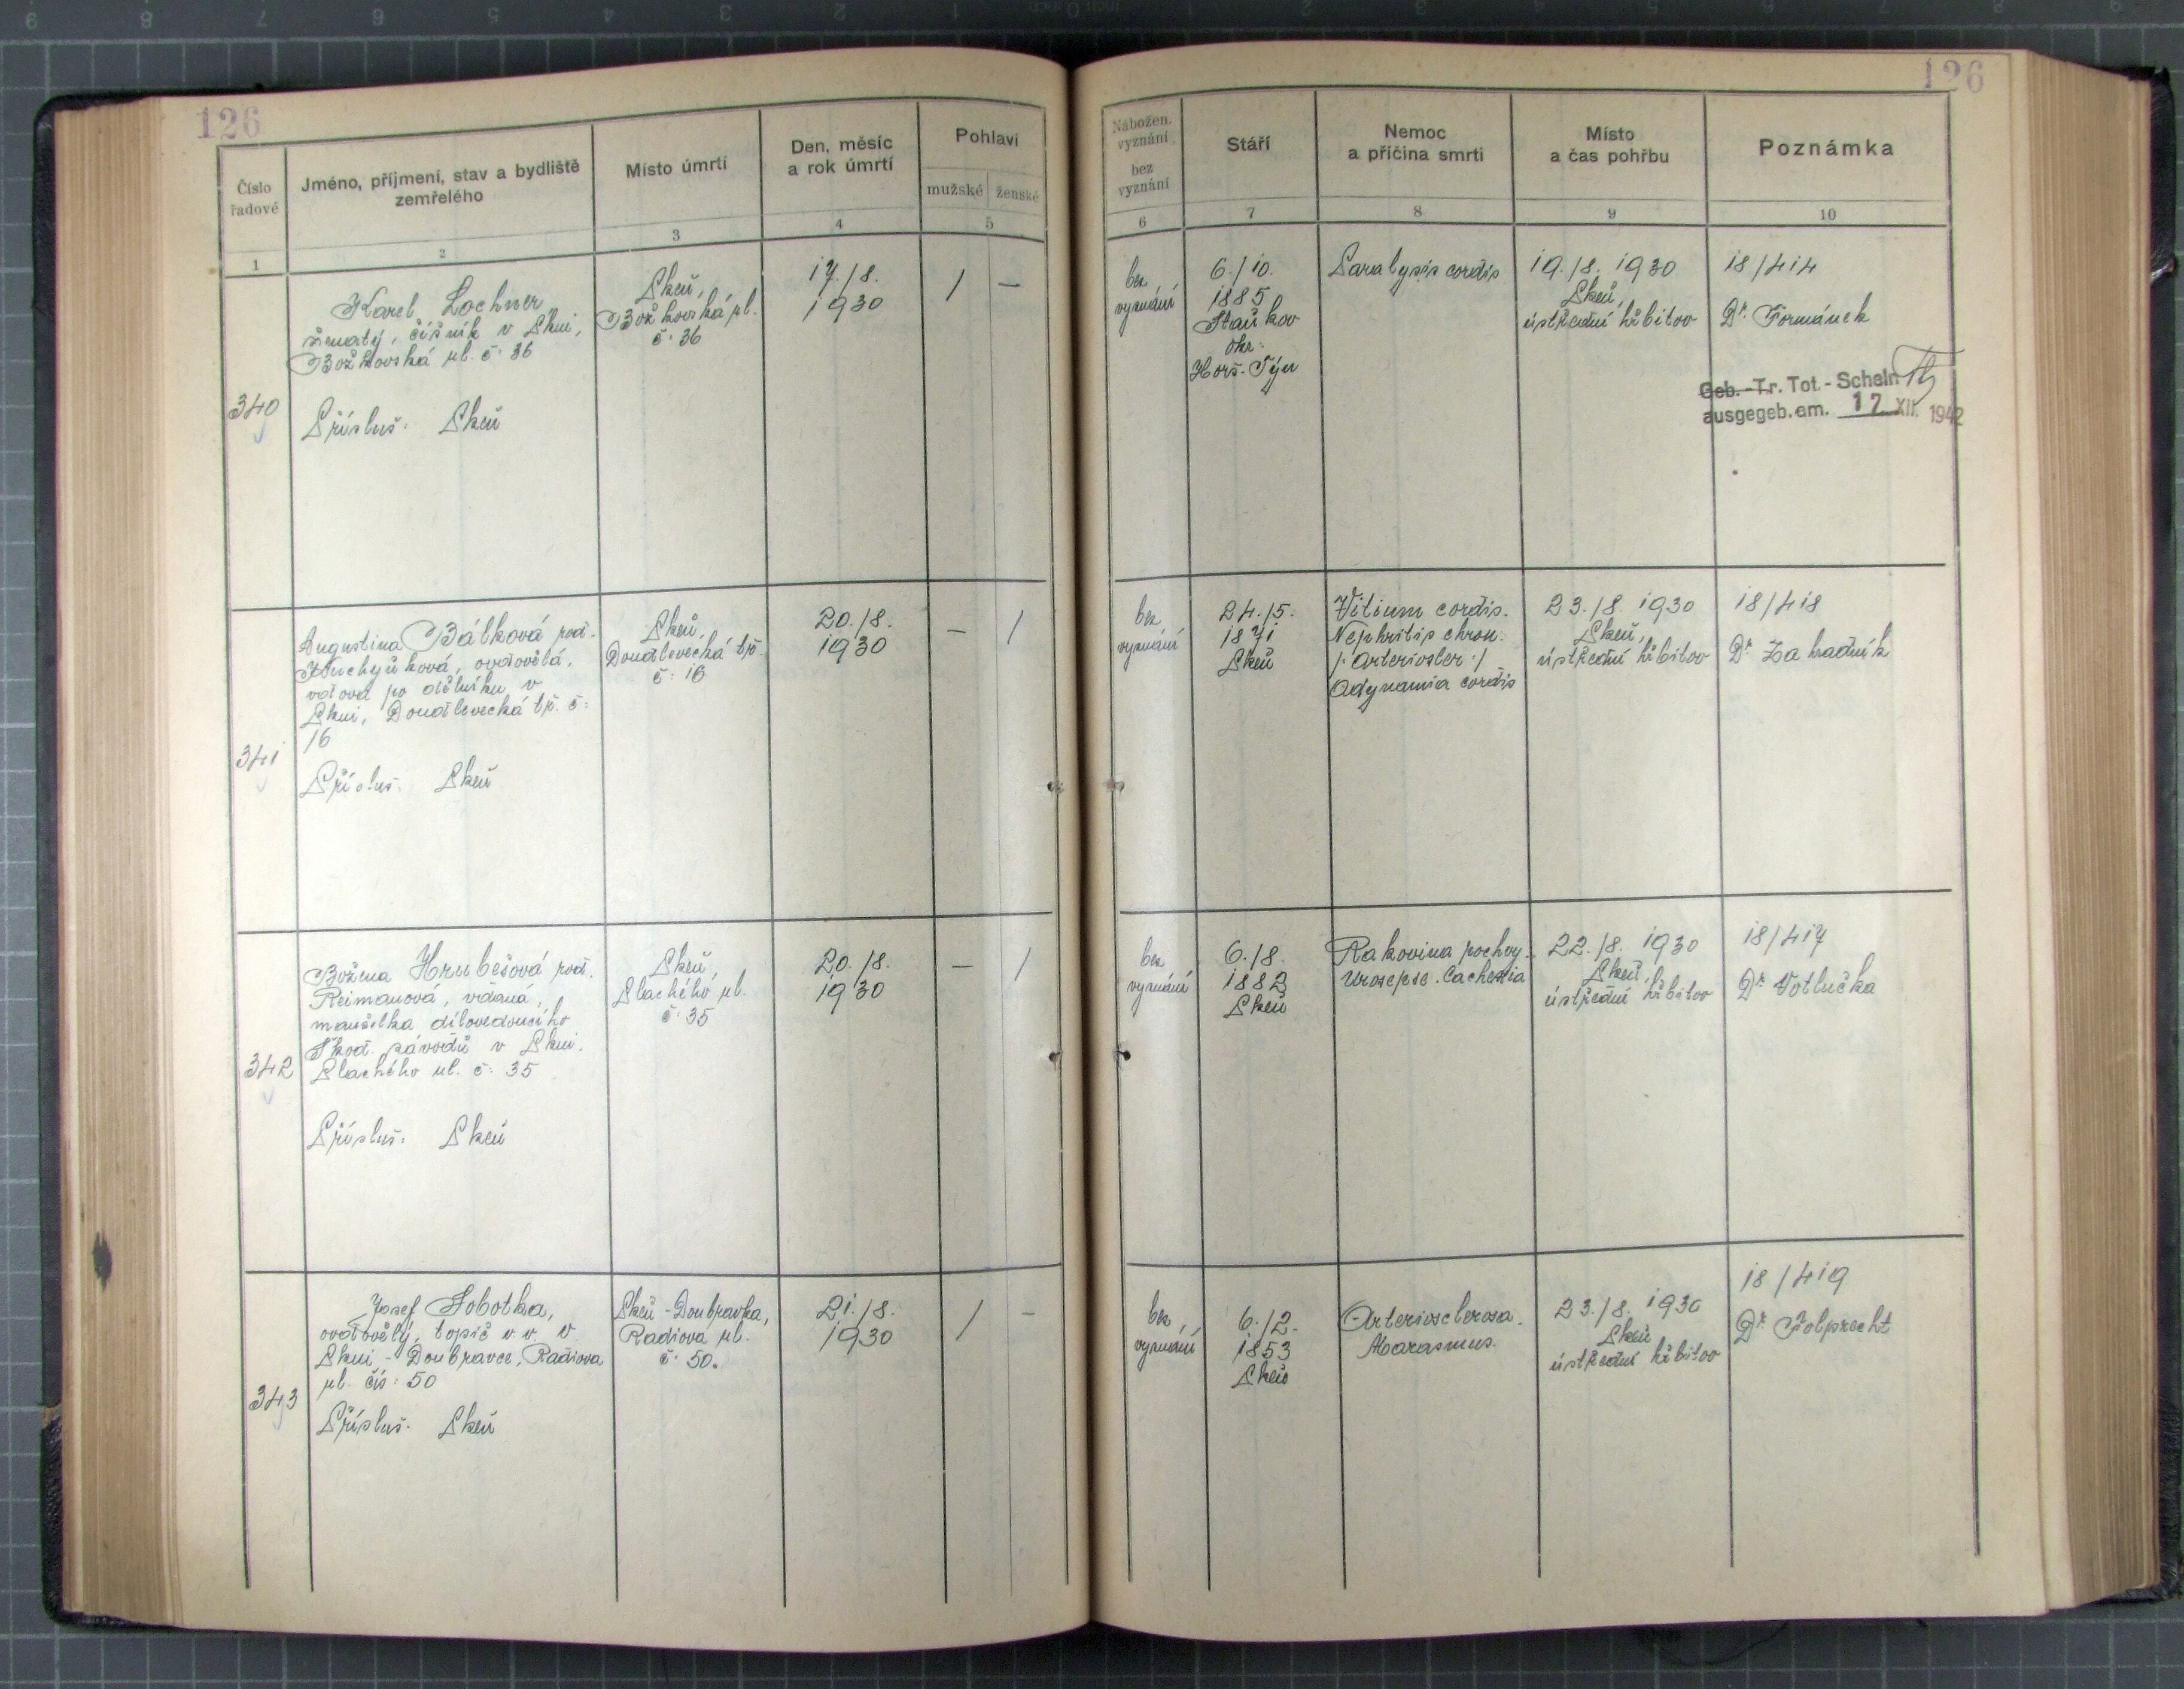 126
Číslo
řadové
Jméno, příjmení, stav a bydliště
zemřelého
Místo úmrtí
Den, měsíc
a rok úmrtí
Pohlaví
mužské
ženské
1
2
3
4
5
340
Karel Lochner
ženatý, číšník v Plzni,
Božkovská ul. č: 36
Přísluš: Plzeň
Plzeň,
Božkovská ul.
č: 36
17./8.
1930
/
—
341
Augustina Bálková roz.
ovdovělá,
vdova po dělníku v
Plzni, Doudlevecká tř. č:
16
Přísluš. Plzeň
Plzeň,
Doudlevecká tř.
č: 16
20./8.
1930
—
/
342
Božena Hrubešová roz.
Reimanová, vdaná,
manželka dílovedoucího
Škod. závodů v Plzni.
Plachého ul. č: 35
Přísluš: Plzeň
Plzeň,
Plachého ul.
č: 35
20./8.
1930
—
/
343
Josef Sobotka,
ovdovělý, topič v. v. v
Plzni - Doubravce, Radiova
ul. čís: 50
Přísluš. Plzeň
Plzeň - Doubravka,
Radiova ul.
č: 50.
21./8.
1930
/
-
126
Nábožen.
vyznání
bez
vyznání
Stáří
Nemoc
a příčina smrti
Místo
a čas pohřbu
Poznámka
6
7
8
9
10
bez
vyznání
6./10.
1885
Staňkov
okr:
Horš. Týn
Paralysis cordis
19./8. 1930
Plzeň,
ústřední hřbitov
18/414
Dr. Formánek
Geb.-Tr. Tot.-Schein
ausgegeb. am. 17. XII. 1942
bez
vyznání
24./5.
1871
Plzeň
Vitium cordis.
Nephritis chron.
/: arterioscler :/
Adynamia cordis
23./8. 1930
Plzeň,
ústřední hřbitov
18/418
Dr. Zahradník
bez
vyznání
6./8.
1882
Plzeň
Rakovina pochvy.
Urosepse. Cachexia
22./8. 1930
Plzeň,
ústřední hřbitov
18/417
Dr. Votlučka
bez
vyznání
6./2.
1853
Plzeň
Arteriosclerosa.
Marasmus.
23./8. 1930
Plzeň
ústřední hřbitov
18/419
Dr. Folprecht